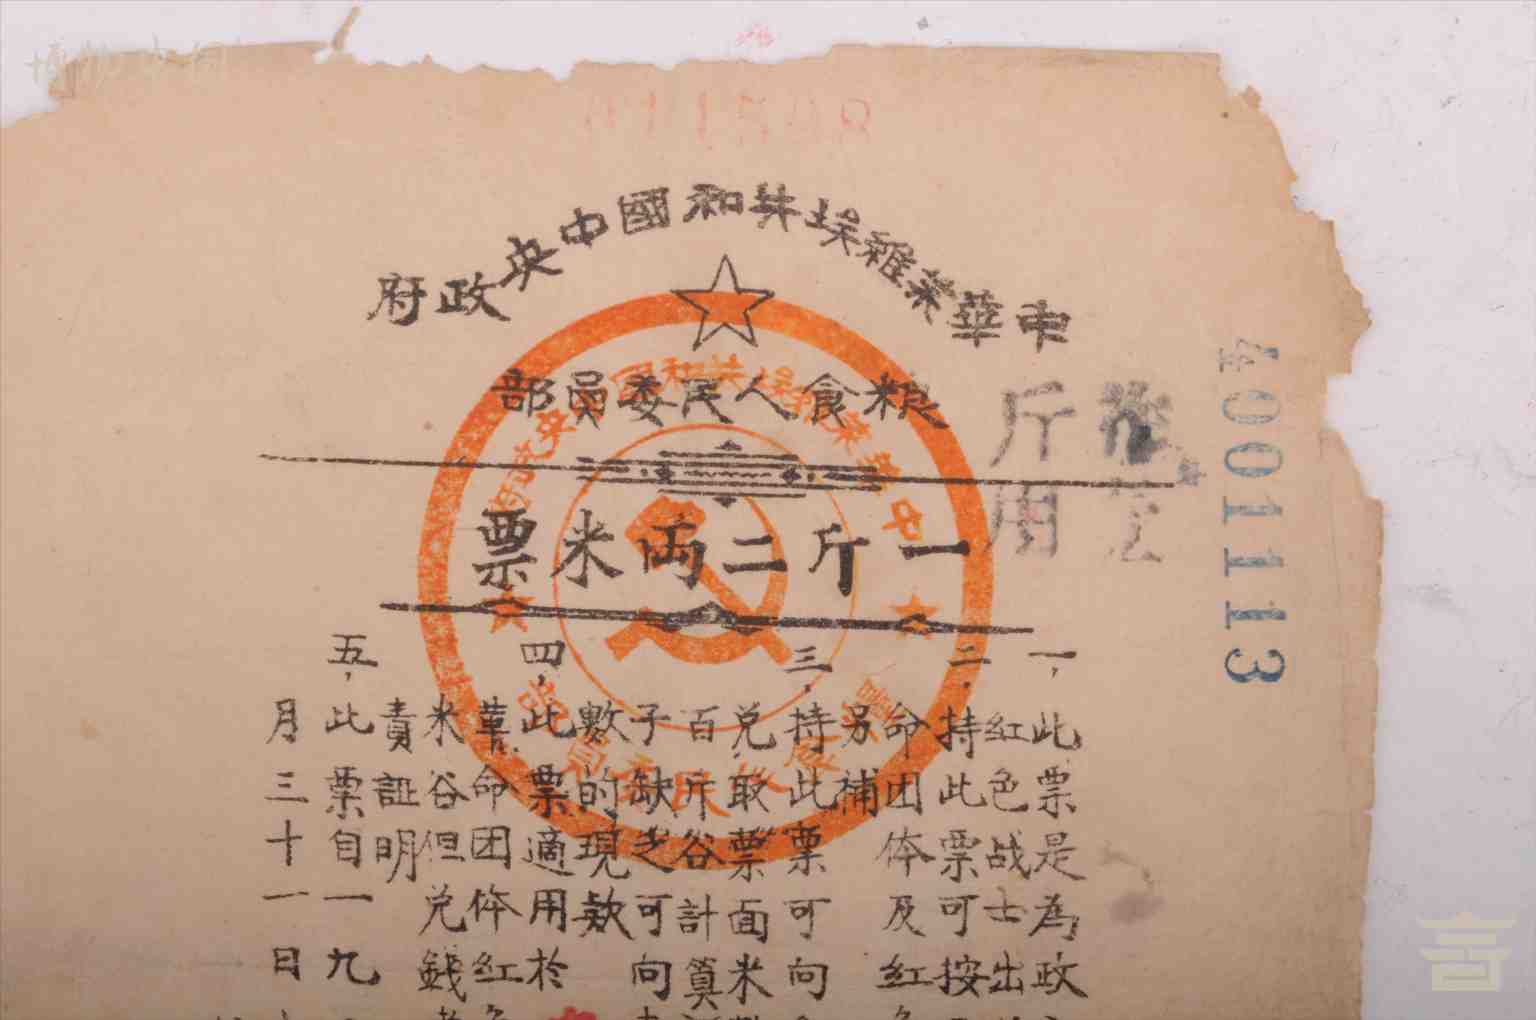 中華蘇維埃共和國中央政府
粮食人民委員部
一斤二両米票
4001113
斤用
一，此票是為政
红色战士出
二，持此票可按
命团体及红
另補
三，持此票可向
兑取票面米
百斤谷計算
子缺乏可向
數的現款
四，此票適用於
革命团体红
米谷但兑錢
責証明
五，此票自一九
月三十一日